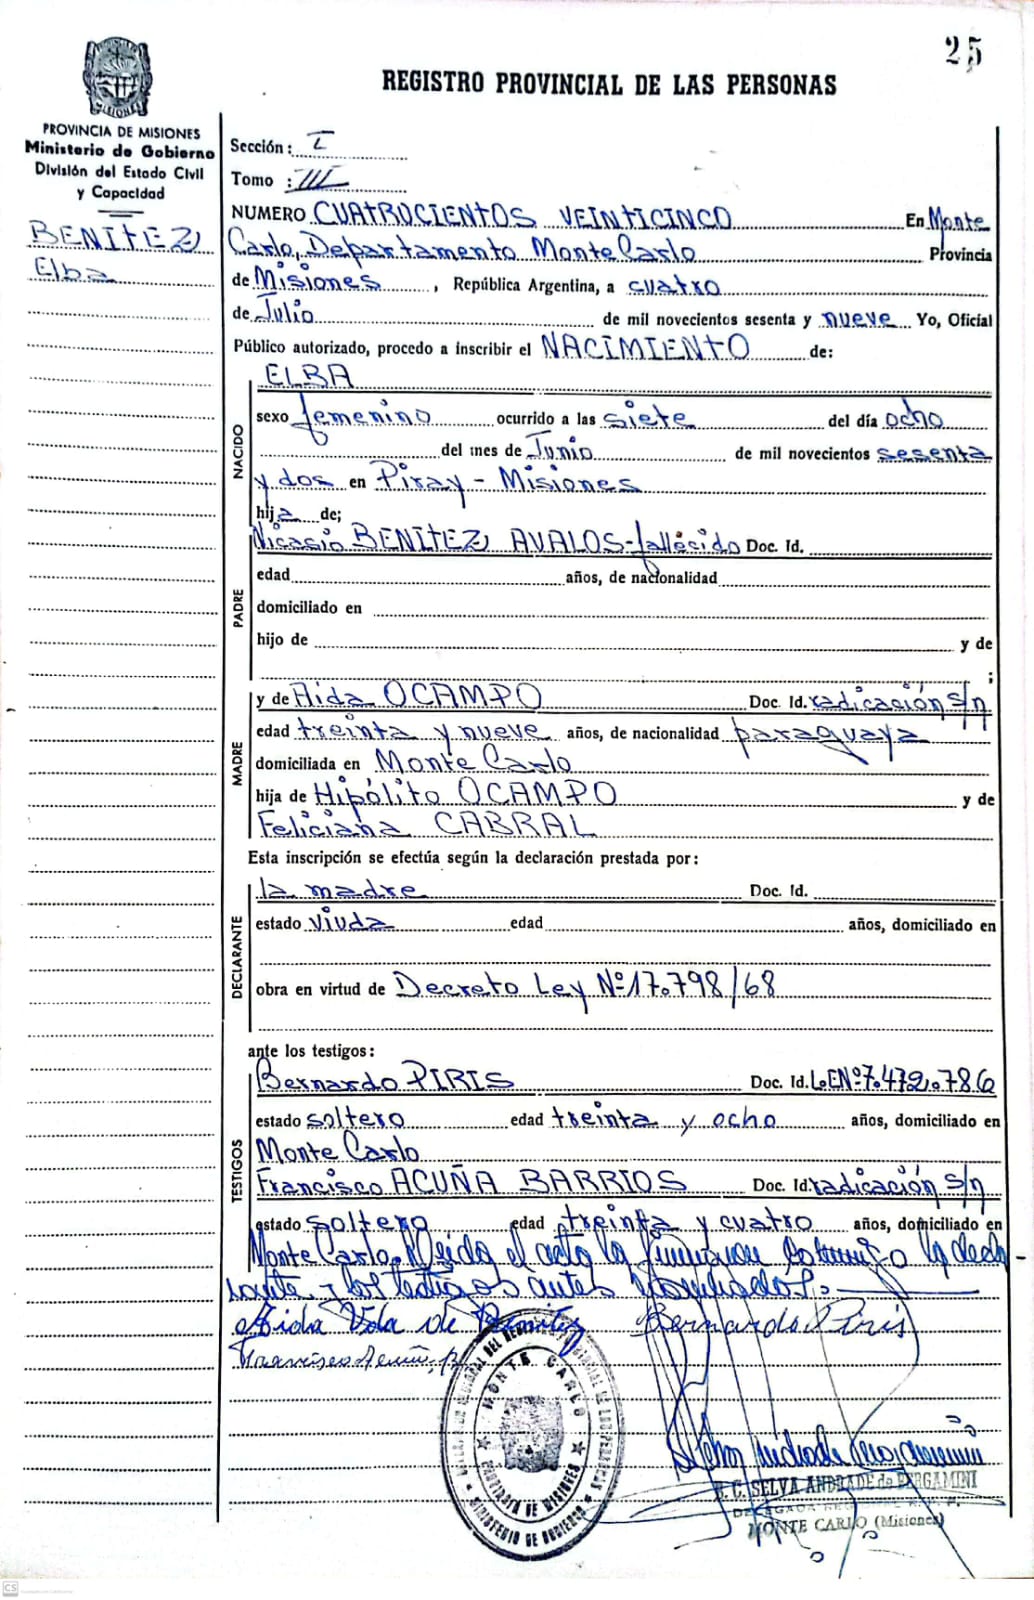 25
REGISTRO PROVINCIAL DE LAS PERSONAS
MISIONES
PROVINCIA DE MISIONES
Ministerio de Gobierno
División del Estado Civil
y Capacidad
BENÍTEZ
Elba
Sección: I
Tomo: III
NUMERO CUATROCIENTOS VEINTICINCO En Monte
Carlo, Departamento Monte Carlo Provincia
de Misiones, República Argentina, a cuatro
de Julio de mil novecientos sesenta y nueve Yo, Oficial
Público autorizado, procedo a inscribir el NACIMIENTO de:
NACIDO
ELBA
sexo femenino ocurrido a las siete del día ocho
del mes de Junio de mil novecientos sesenta
y dos en Piray - Misiones
hija de;
PADRE
Nicasio BENÍTEZ AVALOS-fallécido Doc. Id.
edad años, de nacionalidad
domiciliado en
hijo de y de
;
MADRE
y de Aida OCAMPO Doc. Id. radicación s/n
edad treinta y nueve años, de nacionalidad paraguaya
domiciliada en Monte Carlo
hija de Hipólito OCAMPO y de
Feliciana CABRAL
Esta inscripción se efectúa según la declaración prestada por:
DECLARANTE
la madre Doc. Id.
estado viuda edad años, domiciliado en
obra en virtud de Decreto Ley Nº17.798/68
ante los testigos:
TESTIGOS
Bernardo PIRIS Doc. Id. L.E.Nº7.472.786
estado soltero edad treinta y ocho años, domiciliado en
Monte Carlo
Francisco ACUÑA BARRIOS Doc. Id. radicación s/n
estado soltero edad treinta y cuatro años, domiciliado en
Monte Carlo. Leída el acta la firman conmigo la decla-
rante y los testigos antes
Aida Vda de Benitez Bernardo Piris
Francisco Acuña, B
MONTE CARLO
PROVINCIA DE MISIONES
MINISTERIO DE GOBIERNO
SELVA ANDRADE de BERGAMINI
MONTE CARLO (Misiones)
CS